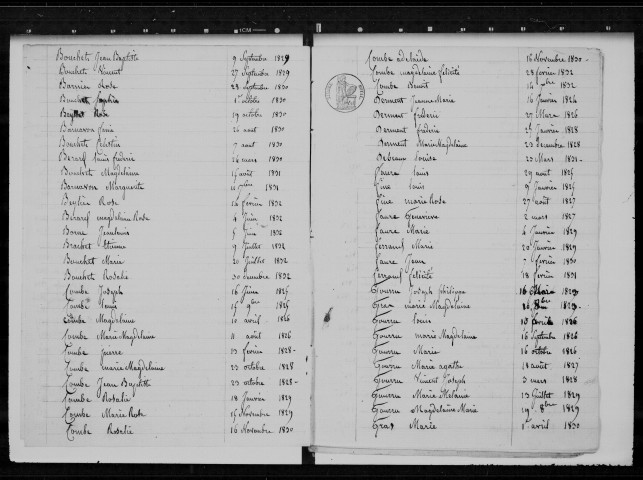 Bouchet Jean Baptiste 9 Septembre 1829
Bouchet Vincent 27 Septembre 1829
Barnier Rose 28 Septembre 1830
Bouchet Sophie 1er octobre 1830
Rose 19 octobre 1830
Barnavon 26 août 1830
Bouchet 7 août 1830
Berard Louis frédéric 26 mars 1830
Bouchet Magdelaine août 1831
Barnavon Marguerite 1831
Beylier Rose 14 fevrier 1832
Berard magdelaine Rose 4 Juin 1832
Borne Jean louis 5 Juin 1832
Brachet Etienne 9 Juillet 1832
Bouchet Marie 20 Juillet 1832
Bouchet Rosalie 30 decembre 1832
Combe Joseph 16 Juin 1825
Combe 15 9bre 1825
Combe Magdelaine 10 avril 1826
Combe Marie Magdelaine 11 août 1826
Combe Pierre 13 fevrier 1828
Combe marie Magdelaine 22 octobre 1828
Combe Jean Baptiste 23 octobre 1828
Combe Rosalie 18 Janvier 1829
Combe Marie Rose 15 Novembre 1829
Combe Rosalie 16 Novembre 1830
Combe adelaide 16 Novembre 1830
Combe magdelaine félicité 28 fevrier 1832
Combe Benoit 14 1832
Derment Jeanne Marie 16 Janvier 1826
Derment fréderic 27 Mars 1826
Derment fréderic 25 Janvier 1828
Derment Marie Magdelaine 23 decembre 1828
Louise 23 Mars 1831
Faure Louis 29 août 1825
Fine Louis 9 Janvier 1825
Fine marie Rose 27 août 1827
Faure Geneviève 2 mars 1827
Faure Marie 6 Janvier 1829
Ferrand Marie 20 Janvier 1829
Faure Jean 7 fevrier 1830
Ferrand félicité 18 fevrier 1831
Gourru Joseph philippe 16 1825
Gras marie Magdelaine 16 1825
Gourru Louis 10 fevrier 1826
Gourru marie Magdelaine 16 Septembre 1826
Gourru Marie 16 octobre 1826
Gourru Marie agathe 18 août 1827
Gourru Vincent Joseph 3 mars 1828
Gourru Marie Mélanie 13 Juillet 1829
Gourru Magdelaine Marie 19 8bre 1829
Gras Marie 1er avril 1830